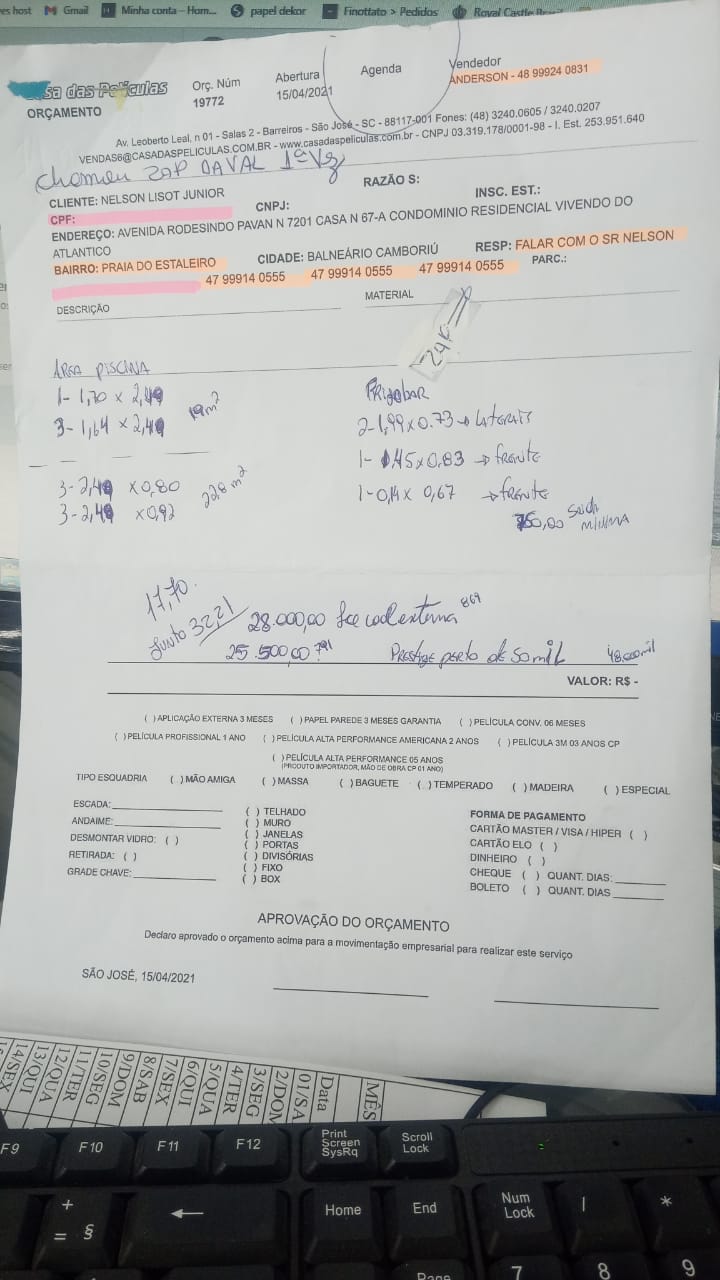 Gmail
Minha conta – Hom...
papel dekor
Finottato > Pedidos
Royal Castle
Casa das Películas
ORÇAMENTO
Orç. Núm
19772
Abertura
15/04/2021
Agenda
Vendedor
ANDERSON - 48 99924 0831
Av. Leoberto Leal, n 01 - Salas 2 - Barreiros - São José - SC - 88117-001 Fones: (48) 3240.0605 / 3240.0207
VENDAS6@CASADASPELICULAS.COM.BR - www.casadaspeliculas.com.br - CNPJ 03.319.178/0001-98 - I. Est. 253.951.640
1ª Vz
CLIENTE: NELSON LISOT JUNIOR
RAZÃO S:
CPF:
CNPJ:
INSC. EST.:
ENDEREÇO: AVENIDA RODESINDO PAVAN N 7201 CASA N 67-A CONDOMINIO RESIDENCIAL VIVENDO DO
ATLANTICO
BAIRRO: PRAIA DO ESTALEIRO
CIDADE: BALNEÁRIO CAMBORIÚ
RESP: FALAR COM O SR NELSON
47 99914 0555 47 99914 0555 47 99914 0555
PARC.:
DESCRIÇÃO
MATERIAL
ÁREA PISCINA
1- 1,70 x 2,49
3- 1,64 x 2,49
19m²
3- 2,49 x 0,80
3- 2,49 x 0,92
228 m²
FRIGOBAR
2- 1,99 x 0.73 → laterais
1- 1,45 x 0,83 → frente
1- 0,14 x 0,67 → frente
17,70
Junto 32,21
28.000,00
externa 869
25.500,00 791
Prestige perto de 50 mil
48.000 mil
VALOR: R$ -
( ) APLICAÇÃO EXTERNA 3 MESES ( ) PAPEL PAREDE 3 MESES GARANTIA ( ) PELÍCULA CONV. 06 MESES
( ) PELÍCULA PROFISSIONAL 1 ANO ( ) PELÍCULA ALTA PERFORMANCE AMERICANA 2 ANOS ( ) PELÍCULA 3M 03 ANOS CP
( ) PELÍCULA ALTA PERFORMANCE 05 ANOS
(PRODUTO IMPORTADOR, MÃO DE OBRA CP 01 ANO)
TIPO ESQUADRIA ( ) MÃO AMIGA ( ) MASSA ( ) BAGUETE ( ) TEMPERADO ( ) MADEIRA ( ) ESPECIAL
ESCADA:
ANDAIME:
DESMONTAR VIDRO: ( )
RETIRADA: ( )
GRADE CHAVE:
( ) TELHADO
( ) MURO
( ) JANELAS
( ) PORTAS
( ) DIVISÓRIAS
( ) FIXO
( ) BOX
FORMA DE PAGAMENTO
CARTÃO MASTER / VISA / HIPER ( )
CARTÃO ELO ( )
DINHEIRO ( )
CHEQUE ( ) QUANT. DIAS:
BOLETO ( ) QUANT. DIAS
APROVAÇÃO DO ORÇAMENTO
Declaro aprovado o orçamento acima para a movimentação empresarial para realizar este serviço
SÃO JOSÉ, 15/04/2021
MÊS
Data
01/SA
2/DOM
3/SEG
4/TER
5/QUA
6/QUI
7/SEX
8/SAB
9/DOM
10/SEG
11/TER
12/QUA
13/QUI
14/SEX
F9
F10
F11
F12
Print
Screen
SysRq
Scroll
Lock
+
= §
←
Home
End
Num
Lock
/
*
7
8
9